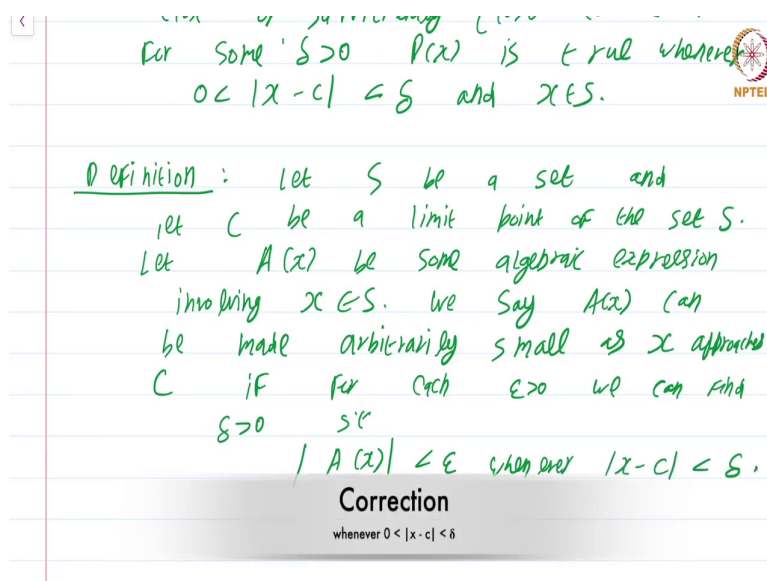 For some δ>0 P(x) is true whenever
0< |x-c| < δ and x∈S.
NPTEL
Definition : Let S be a set and
let C be a limit point of the set S.
Let A(x) be some algebraic expression
involving x∈S. We say A(x) can
be made arbitrarily small as x approaches
C if for each ε>0 we can find
δ>0 s.t
|A(x)| < ε whenever |x-c| < δ.
Correction
whenever 0 < |x - c| < δ